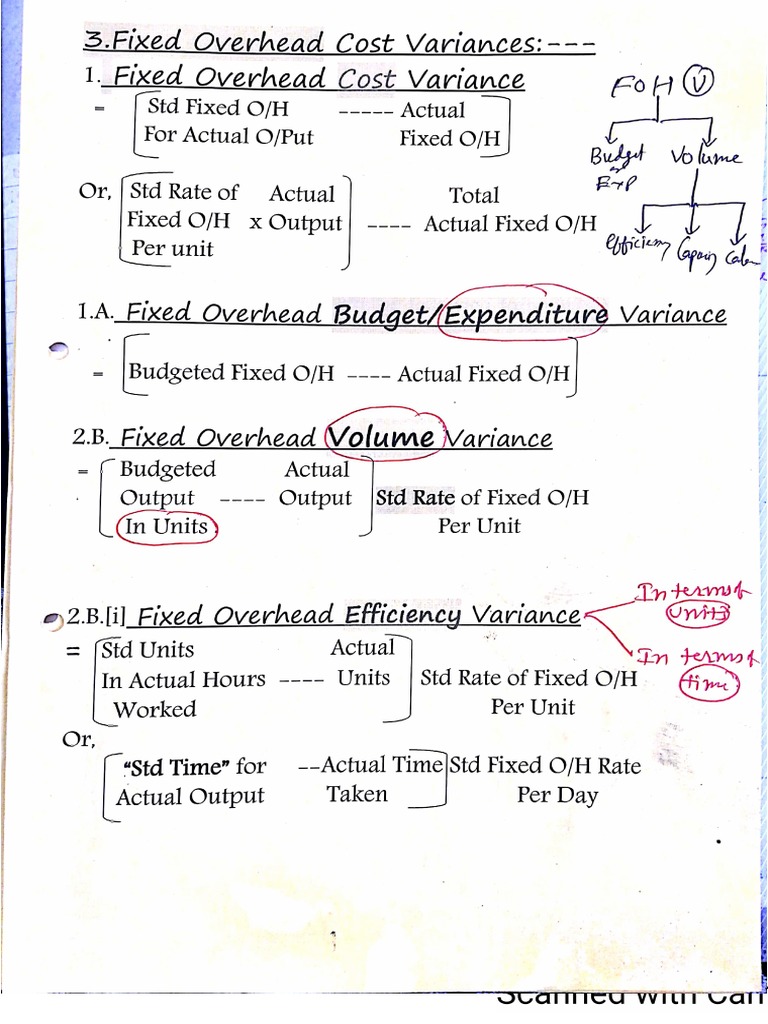 3.Fixed Overhead Cost Variances:---
1. Fixed Overhead Cost Variance
= Std Fixed O/H ----- Actual
For Actual O/Put Fixed O/H
FOH V
Budget Volume
or
Exp
Efficiency
Or, Std Rate of Actual Total
Fixed O/H x Output ---- Actual Fixed O/H
Per unit
1.A. Fixed Overhead Budget/Expenditure Variance
= Budgeted Fixed O/H ---- Actual Fixed O/H
2.B. Fixed Overhead Volume Variance
= Budgeted Actual
Output ---- Output Std Rate of Fixed O/H
In Units Per Unit
2.B.[i] Fixed Overhead Efficiency Variance
In terms of
units
In terms of
time
= Std Units Actual
In Actual Hours ---- Units Std Rate of Fixed O/H
Worked Per Unit
Or,
"Std Time" for --Actual Time Std Fixed O/H Rate
Actual Output Taken Per Day
Scanned with Cam